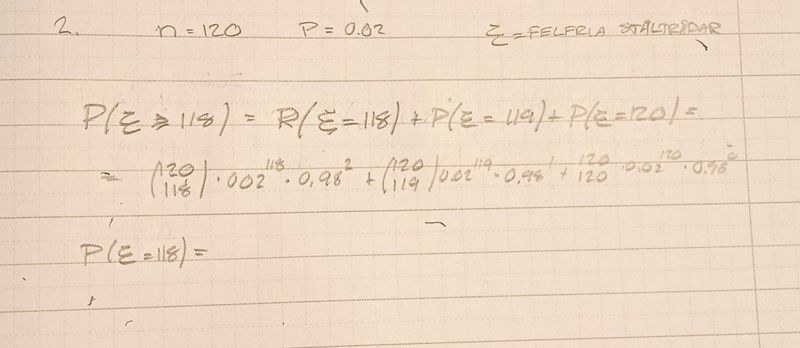 2. n = 120 P = 0.02 ξ = FELFRIA STÅLTRÅDAR
P(ξ ≥ 118) = P(ξ = 118) + P(ξ = 119) + P(ξ = 120) =
= (120 118) · 002^118 · 0,98^2 + (120 119) 0.02^119 · 0.98^1 + 120 120 · 0.02^120 · 0.98^0
P(ξ = 118) =